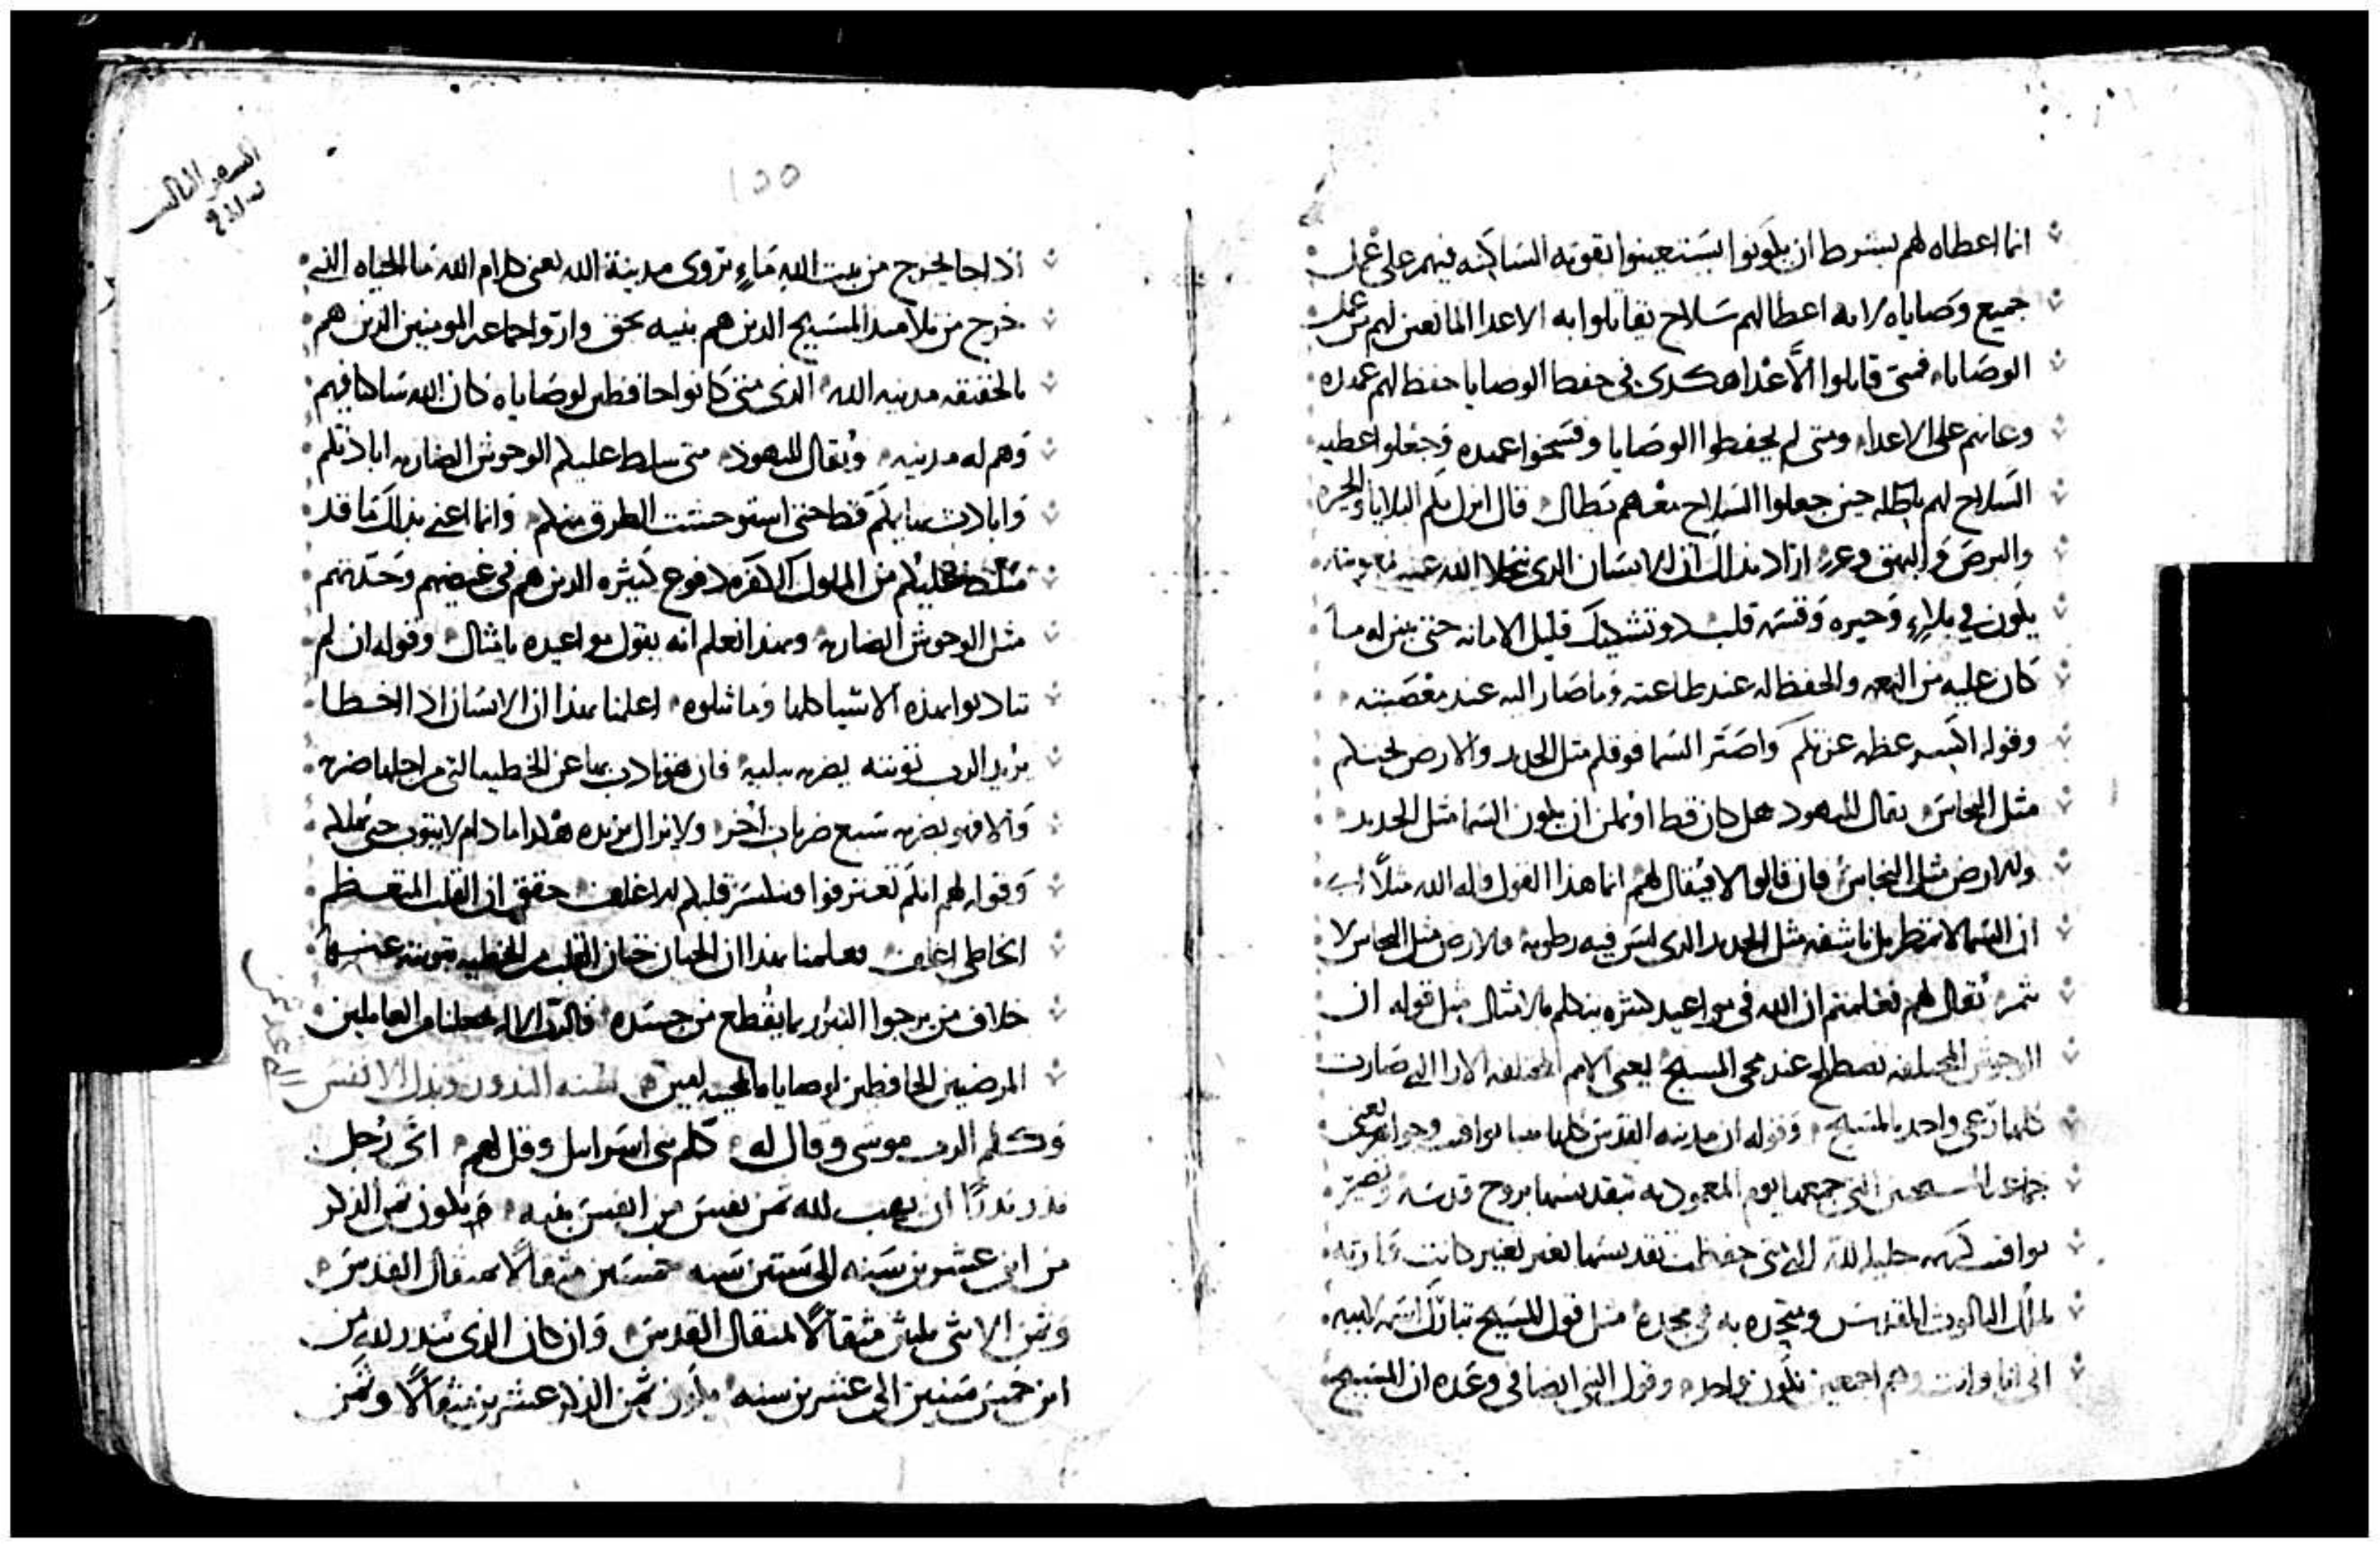 انما اعطاه لهم بشرط ان يكونوا يستعينوا بقوته الساكنه فيهم على عمل
جميع وصاياه لانه اعطا لهم سلاح يقاتلوا به الاعدا المانعين لهم من عمل
الوصايا فمتى قاتلوا الأعدا هكدى فى حفظ الوصايا حفظ لهم عهده
وعانهم على الاعدا ومتى لم يحفظوا الوصايا وفسخوا عهده وجعلوا عطيه
السلاح لهم باطله حين جعلوا السلاح معهم بطال قال انزل بكم البلايا والحيره
والبرص والبهق وغيره اراد بدالك ان الانسان الدى يتخلا الله عنه
يكون في بلاء وحيره وقسى قلب وتشكيك قليل الامانه حتى ينزله ما
كان عليه من النعمه والحفظ له عند طاعته وما صار اليه عند معصيته
وقوله اكسر عظمه عزتكم واصير السما فوقكم مثل الحديد والارض تحتكم
مثل النحاس يقال لليهود هل كان قط او يمكن ان يكون السما مثل الحديد
والارض مثل النحاس فان قالوا لا فيقال لهم انما هذا القول قاله الله مثلاً اى
ان السما لا تمطر بل ناشفه مثل الحديد الدى ليس فيه رطوبه والارض مثل النحاس لا
تثمر يقال لهم تعلمتم ان الله فى مواعيد كثيره يتكلم بالامثال مثل قوله ان
الوحوش المختلفه تصطلح عند مجى المسيح يعنى الامم المختلفه الارا التى صارت
كلها رعى واحد بالمسيح وقوله ان مدينه القدس كلها مها يواقيت وجواهر يعنى
جماعه المسيحيين التى جمعها يوم المعموديه بتقديسها بروح قدسه وتصير
يواقيت كريمه حليه لله التى حفظت تقديسها بغير تغيير كانت
لملك التالوت المقدس ومتحده به فى مجده مثل قول المسيح تبارك اسمه لابيه
انى انا وانت وهم اجمعين نكون واحد وقول النبى ايضا فى وعده ان المسيح
السفر الثالث
١٥٥
اذا جا يخرج من بيت الله ماء يروى مدينة الله يعنى كلام الله ما الحياه الذى
خرج من تلاميد المسيح الدين هم بيته بحق واروا جماعه المومنين الدين هم
بالحقيقه مدينه الله الدى متى كانوا حافظين لوصاياه كان الله ساكنا فيهم
وهم له مدينه ويقال لليهود متى سلط عليكم الوحوش الضاريه ابادتكم
وابادت بهايمكم قط حتى استوحشت الطرق منكم وانما اعنى بدالك ما قد
سلط عليكم من الملوك الكفره دفوع كثيره الدين هم فى غيضهم وحدتهم
مثل الوحوش الضاريه وبهدا نعلم انه يقول مواعيده بامثال وقوله ان لم
تتادبوا بهذه الاشيا كلها وما تلوه اعلمنا بهدا ان الانسان ادا اخطا
يريد الرب توبته يضربه ببليه فان هو تادب بها عن الخطيه التى من اجلها ضربه
والا فهو يضربه سبع ضربات أخر ولا يزال يزيده هكدا ما دام لا يتوب حتى يهلكه
وقوله لهم انكم تعترفوا وينكسر قلبكم الاغلف حقق ان القلب المتعظم
الخاطى اغلف فعلمنا بهدا ان الختان ختان القلب من الخطيه بتوبته عنها
خلاف من يرجوا التبرر بما يقطع من جسده فالرب الاله يجعلنا من العاملين
المرضيين الحافظين لوصاياه المحييه امين سنه الندور وندل الانفس
وكلم الرب موسى وقال له كلم بنى اسرايل وقل لهم اى رجل
ندر ندرًا ان يهب لله ثمن نفس من انفس بنيه فيكون ثمن الذكر
من ابن عشرين سنه الى ستين سنه خمسين مثقالًا بمثقال القدس
وثمن الانثى ثلثين مثقالًا بمثقال القدس وان كان الدى يندر لله من
ابن خمس سنين الى عشرين سنه يكون ثمن الذكر عشرين مثقالًا وثمن